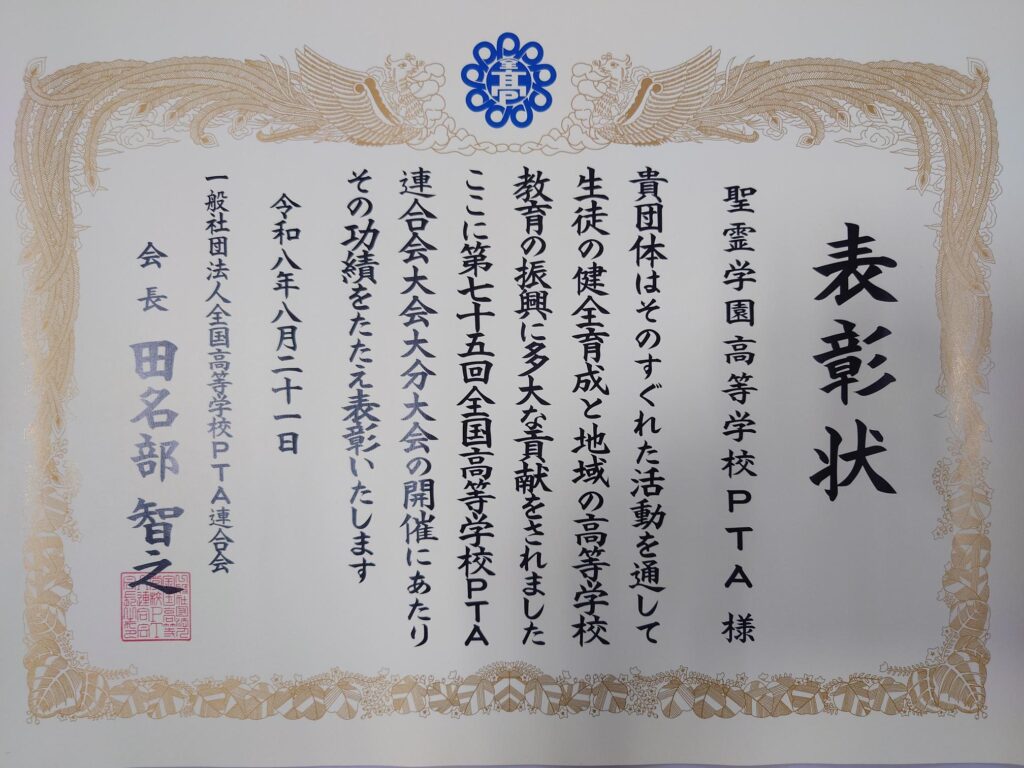 全
高
P
表彰状
聖霊学園高等学校PTA様
貴団体はそのすぐれた活動を通して
生徒の健全育成と地域の高等学校
教育の振興に多大な貢献をされました
ここに第七十五回全国高等学校PTA
連合会大会大分大会の開催にあたり
その功績をたたえ表彰いたします
令和八年八月二十一日
一般社団法人全国高等学校PTA連合会
会長 田名部智之